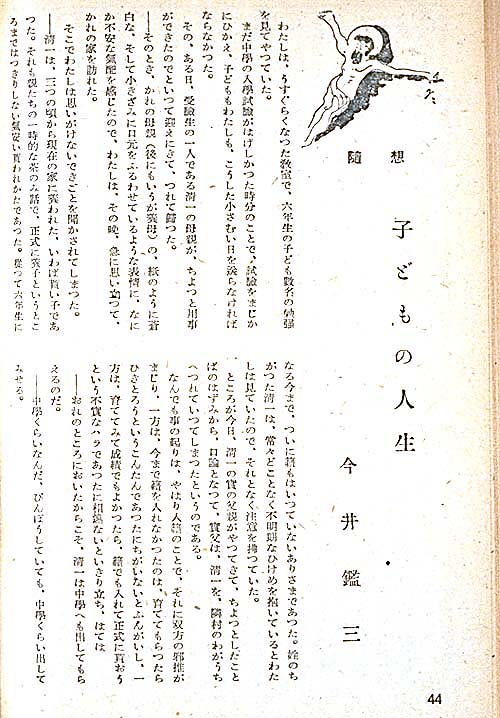 隨想
子どもの人生
今井鑑三
わたしは、うすぐらくなつた教室で、六年生の子ども数名の勉强
を見てやつていた。
まだ中学の入學試験がはげしかつた時分のことで、試験をまじか
にひかえ、子どももわたしも、こうした小さむい日を送らなければ
ならなかつた。
その、ある日、受驗生の一人である清一の母親が、ちよつと用事
ができたのでといつて迎えにきて、つれて歸つた。
――そのとき、かれの母親（後にもいうが養母）の、紙のように蒼
白な、そして小きざみに口元をふるわせているような表情に、なに
か不安な氣配を感じたので、わたしは、その晩、急に思い立つて、
かれの家を訪れた。
そこでわたしは思いがけないできごとを聞かされてしまつた。
――清一は、三つの頃から現在の家に養われた、いわば貰い子であ
つた。それも親たちの一時的な茶のみ話で、正式に養子というとこ
ろまではつきりしない氣安い貰われかたであつた。從つて六年生に
なる今まで、ついに籍もはいつていないありさまであつた。姓のち
がつた清一は、常々どことなく不明朗なひけめを抱いているとわた
しは見ていたので、それとなく注意を拂つていた。
ところが今日、清一の實の父親がやつてきて、ちよつとしたこと
ばのはずみから、口論となつて、實父は、清一を、隣村のわがうち
へつれていつてしまつたというのである。
なんでも事の起りは、やはり入籍のことで、それに双方の邪推が
まじり、一方は、今まで籍を入れなかつたのは、育ててもらつたら
ひきとろうというこんたんであつたにちがいないとふんがいし、一
方は、育ててみて成績でもよかつたら、籍でも入れて正式に貰おう
という不實なハラであつたに相違ないといきり立ち、はては
――おれのところにおいたからこそ、清一は中學へも出してもら
えるのだ。
――中學くらいなんだ、びんぼうしていても、中學くらい出して
みせる。
44